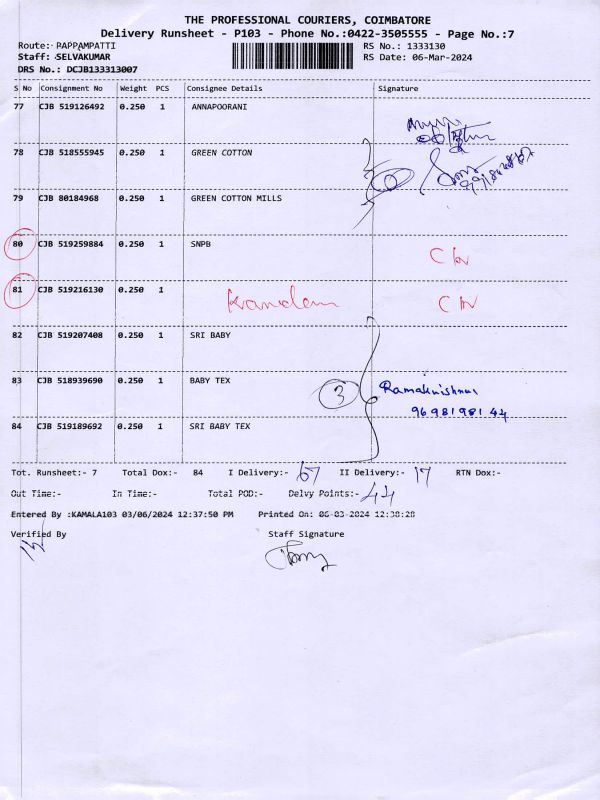 THE PROFESSIONAL COURIERS, COIMBATORE
Delivery Runsheet - P103 - Phone No.:0422-3505555 - Page No.:7
Route:- PAPPAMPATTI RS No.: 1333130
Staff: SELVAKUMAR RS Date: 06-Mar-2024
DRS No.: DCJB133313007
S No Consignment No Weight PCS Consignee Details Signature
77 CJB 519126492 0.250 1 ANNAPOORANI
78 CJB 518555945 0.250 1 GREEN COTTON
79 CJB 80184968 0.250 1 GREEN COTTON MILLS
80 CJB 519259884 0.250 1 SNPB
81 CJB 519216130 0.250 1
82 CJB 519207408 0.250 1 SRI BABY
83 CJB 518939690 0.250 1 BABY TEX 3 Ramakrishnan
96981981 44
84 CJB 519189692 0.250 1 SRI BABY TEX
Tot. Runsheet:- 7 Total Dox:- 84 I Delivery:- 67 II Delivery:- 17 RTN Dox:-
Out Time:- In Time:- Total POD:- Delvy Points:- 44
Entered By :KAMALA103 03/06/2024 12:37:50 PM Printed On: 06-03-2024 12:38:28
Verified By Staff Signature